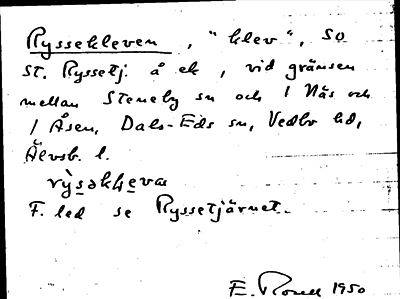 Ryssekleven, "klev", SO
St. Ryssetj. å ek, vid gränsen
mellan Steneby sn och 1 Näs och
1 Åsen, Dals-Eds sn, Vedbo hd,
Älvsb. l.
F. led se Ryssetjärnet.
E. 1950